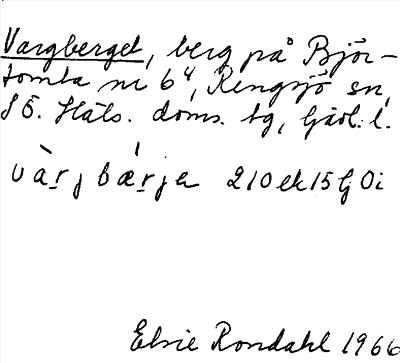 Vargberget, berg på Björ-
tomta nr 6⁴, Rengsjö sn,
S Ö. Häls. doms. tg, Gävl. l.
vàrjbǽrjɐ 210 ek 15 Gj 0i
Elsie Rondahl 1966